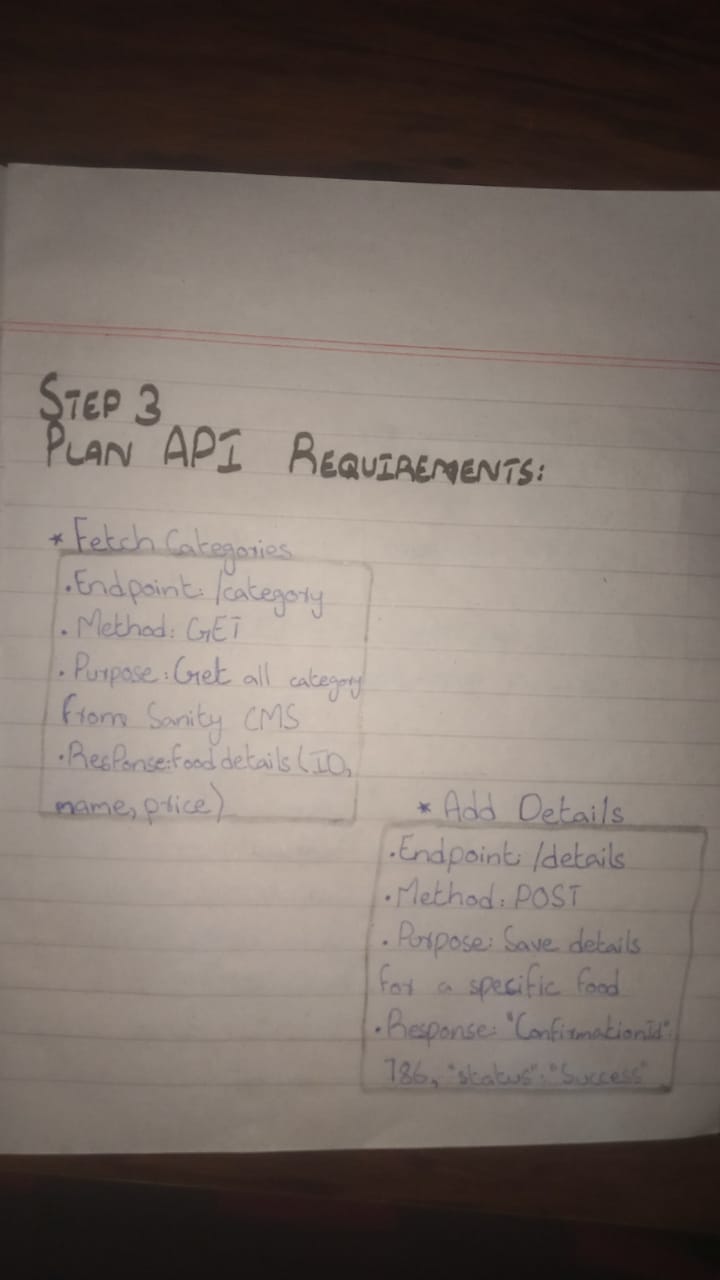 STEP 3
PLAN API REQUIREMENTS:
* Fetch Categories
. Endpoint: /category
. Method: GET
. Purpose: Get all category
from Sanity CMS
. Response: food details (ID,
name, price)
* Add Details
. Endpoint: /details
. Method: POST
. Purpose: Save details
for a specific food
. Response: "ConfirmationId":
786, "status": "Success"